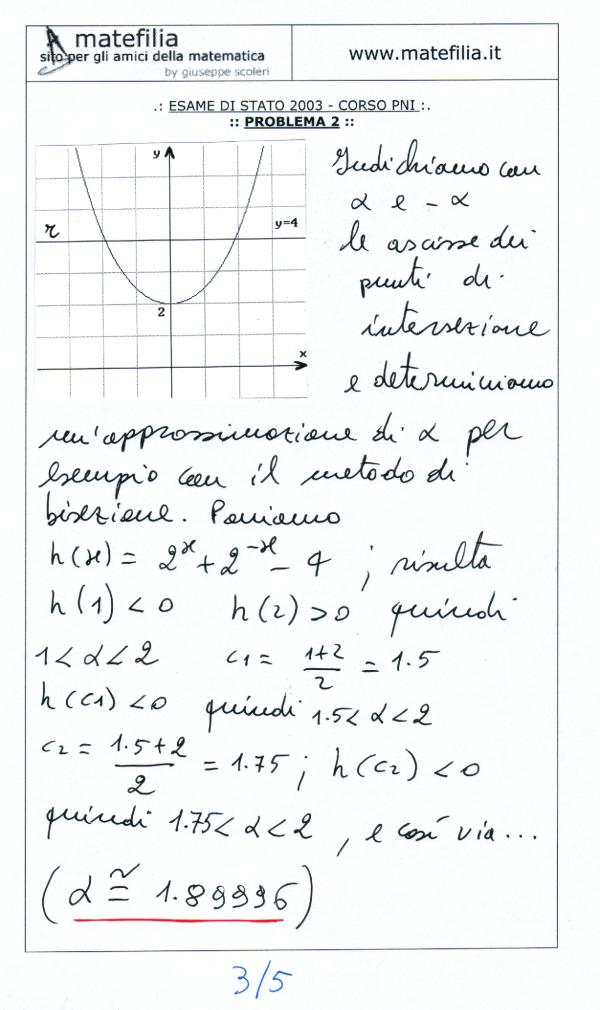 matefilia
sito per gli amici della matematica
by giuseppe scoleri
www.matefilia.it
.: ESAME DI STATO 2003 - CORSO PNI :.
:: PROBLEMA 2 ::
y
r
y=4
2
x
Indichiamo con
α e -α
le ascisse dei
punti di
intersezione
e determiniamo
un'approssimazione di α per
esempio con il metodo di
bisezione. Poniamo
h(x) = 2^x + 2^-x - 4 ; risulta
h(1) < 0 h(2) > 0 quindi
1 < α < 2 c1 = (1+2)/2 = 1.5
h(c1) < 0 quindi 1.5 < α < 2
c2 = (1.5+2)/2 = 1.75 ; h(c2) < 0
quindi 1.75 < α < 2 , e così via...
(α ≅ 1.89996)
3/5